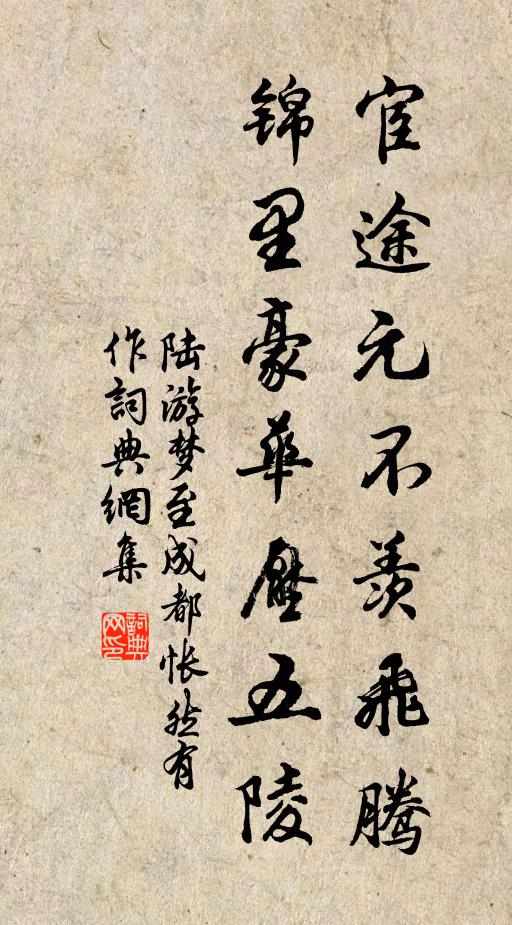 宦途元不羡飛騰
锦里豪華壓五陵
陆游梦至成都怅然有
作詞典網集
詞典网印